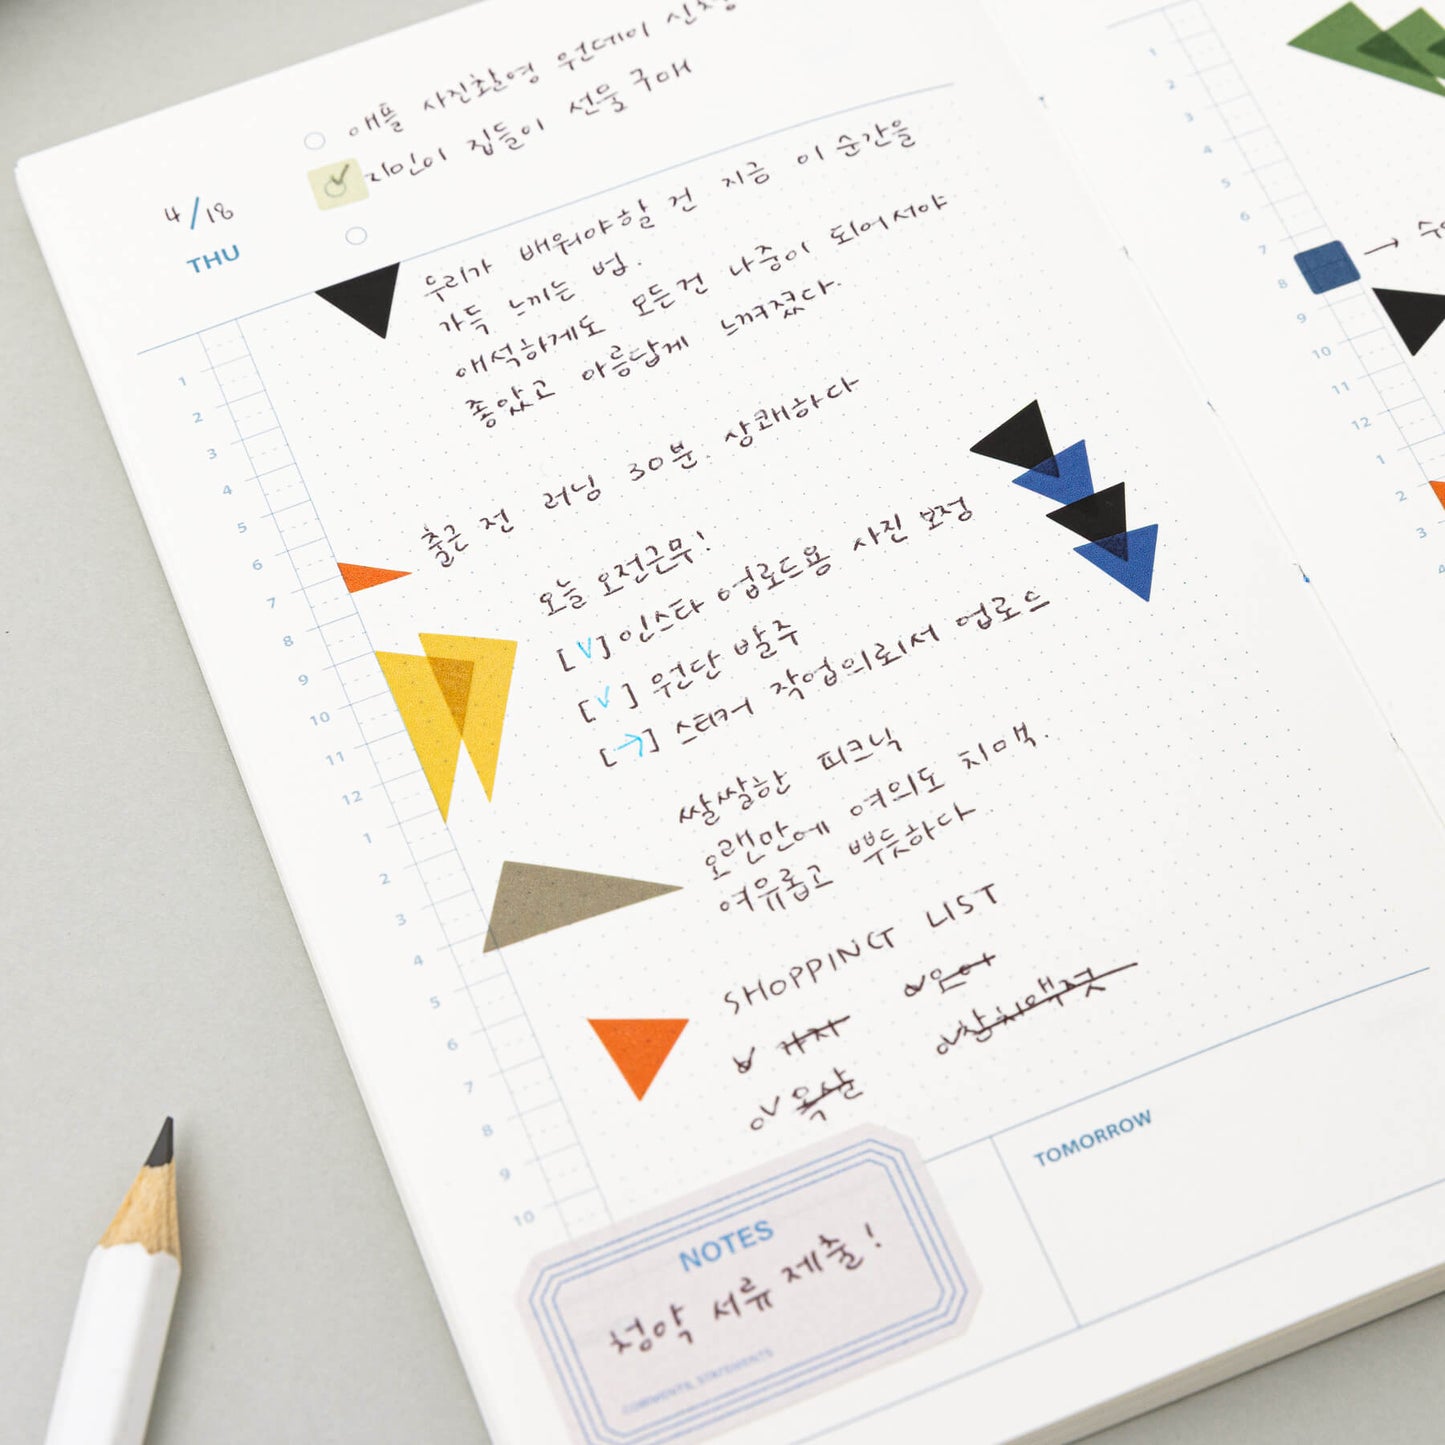 애플 사진촬영 원데이 신청
지인이 집들이 선물 구매
4/18
THU
우리가 배워야할 건 지금 이 순간을
가득 느끼는 법.
애석하게도 모든건 나중이 되어서야
좋았고 아름답게 느껴졌다.
출근 전 러닝 30분. 상쾌하다
오늘 오전근무!
[V] 인스타 업로드용 사진 보정
[V] 원단 발주
[→] 스티커 작업의뢰서 업로드
쌀쌀한 피크닉
오랜만에 여의도 치맥.
여유롭고 뿌듯하다.
SHOPPING LIST
V 과자 V
V 옥살 V
1
2
3
4
5
6
7
8
9
10
11
12
1
2
3
4
5
6
7
8
9
10
TOMORROW
NOTES
청약 서류 제출!
COMMENTS, STATEMENTS
1
2
3
4
5
6
7
8
9
10
11
12
1
2
3
4
→